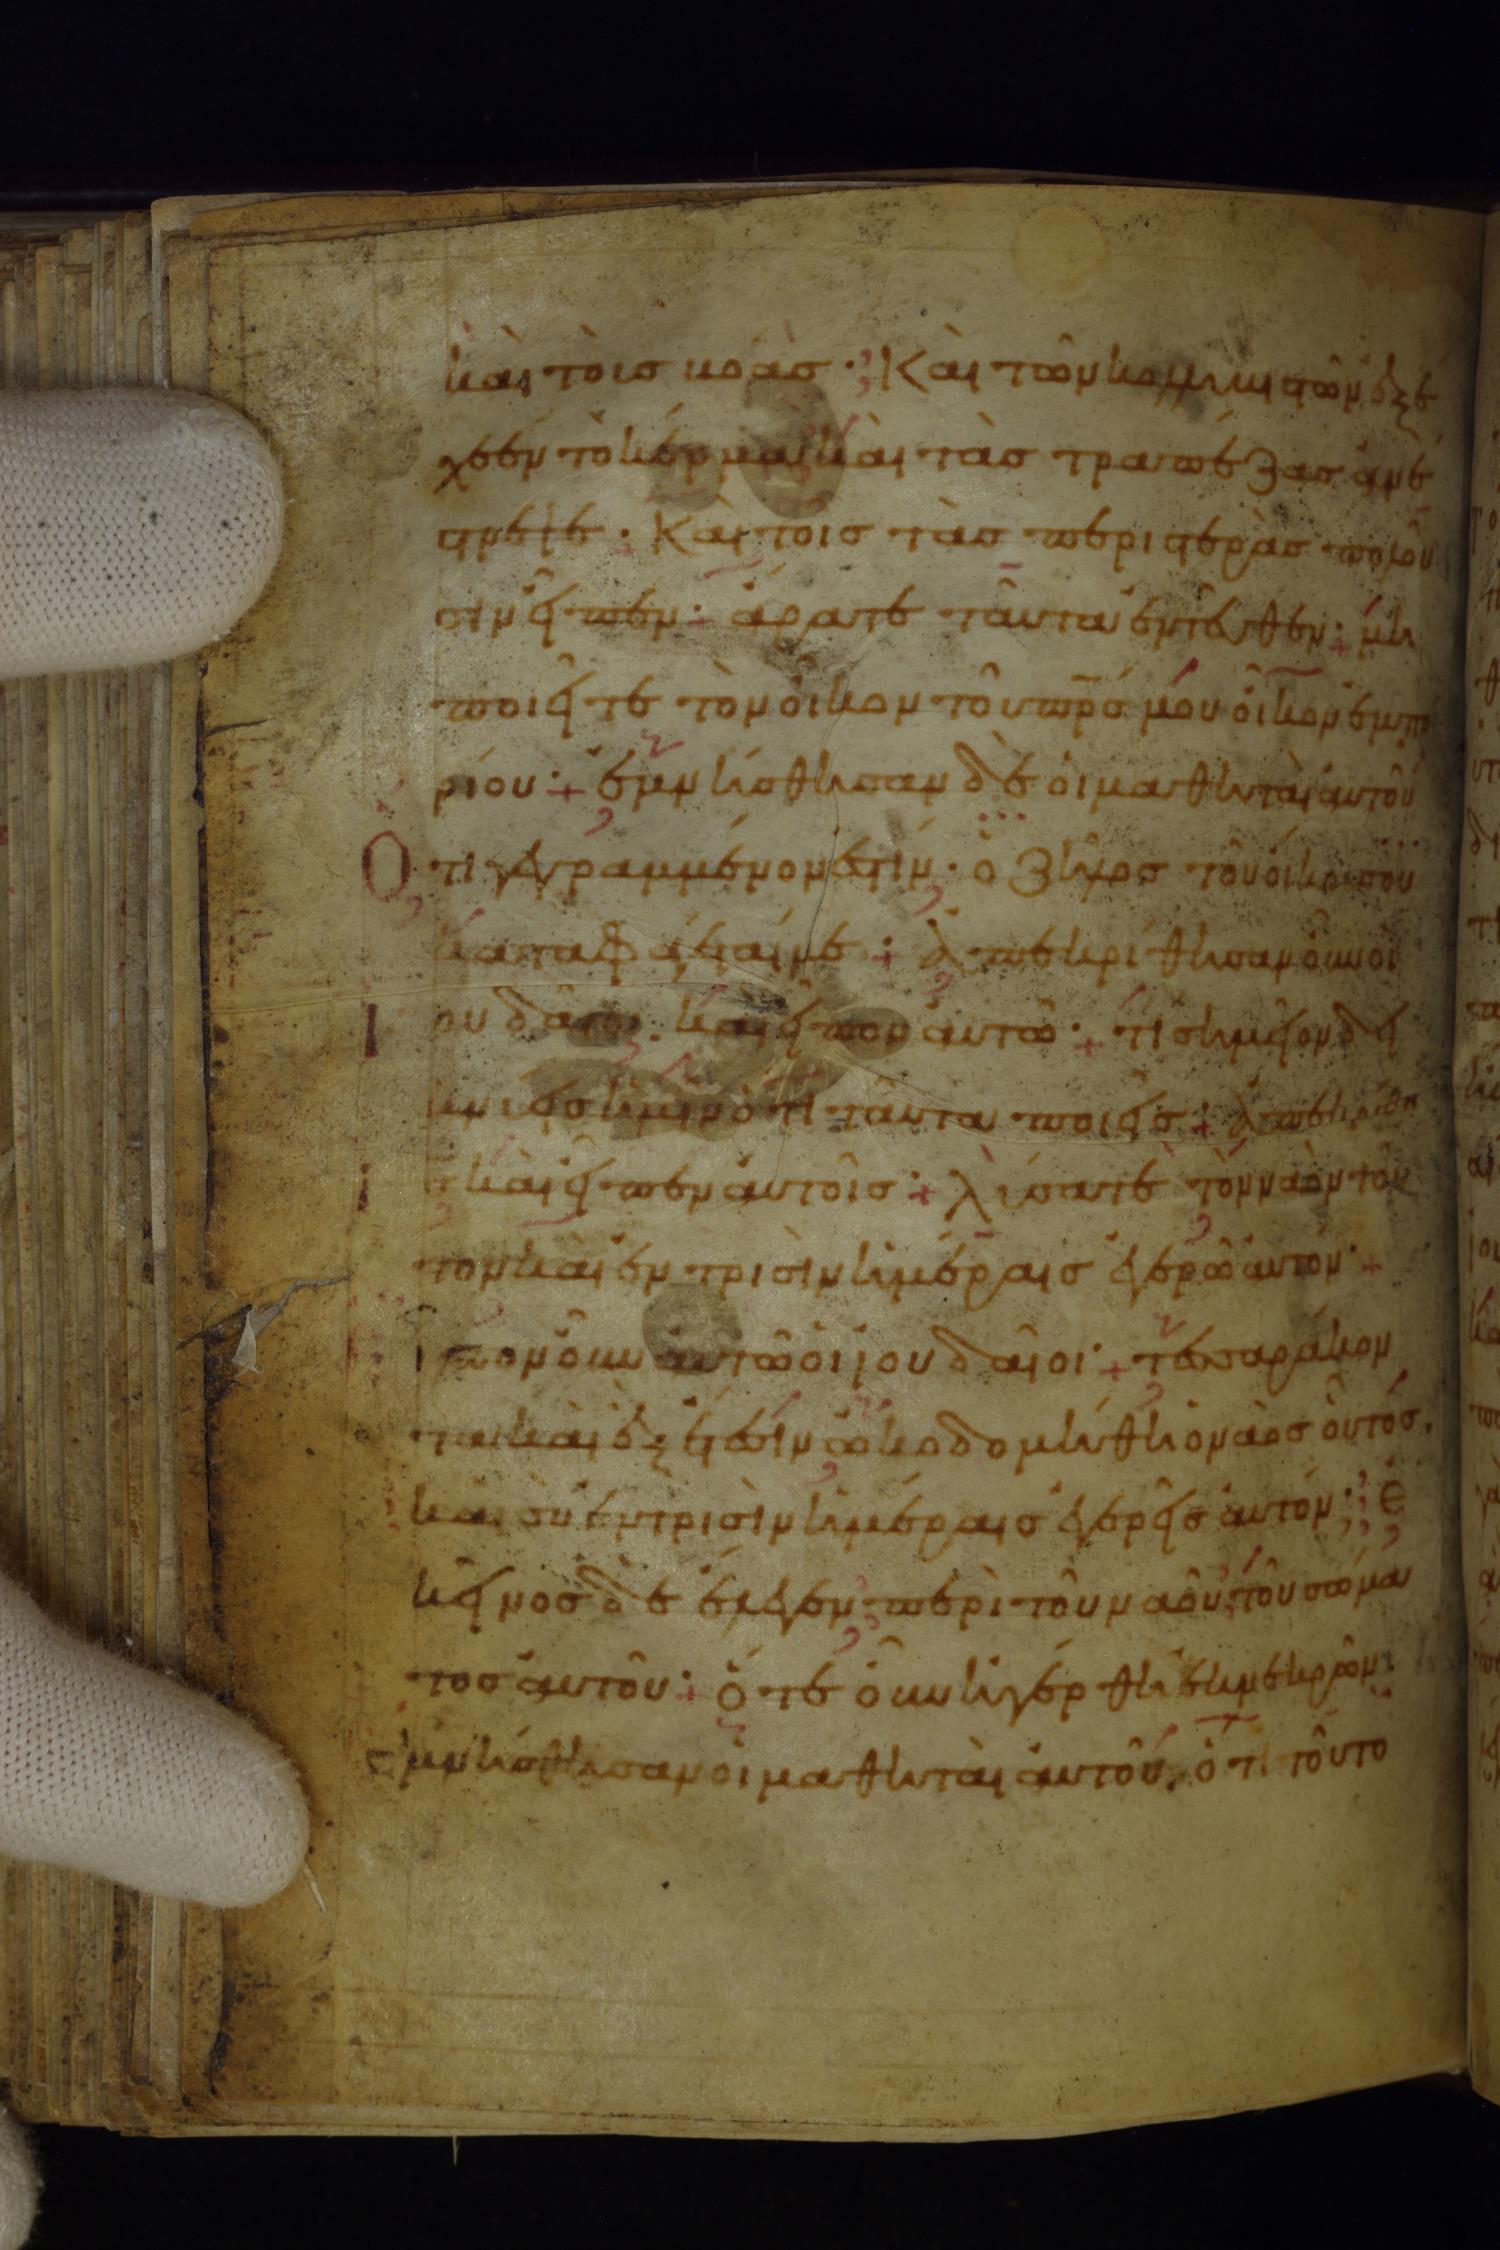 καὶ τοὺσ βοὰσ · Καὶ τῶν κολλυβιστῶν ἐξέ
χεεν τὸ κέρμα καὶ τὰσ τραπέζασ ἀνέ
στρεψε · Καὶ τοῖσ τὰσ περιστερὰσ πωλοῦ
σιν εἶπεν · ἄρατε ταῦτα ἐντεῦθεν · μὴ
ποιεῖτε τὸν οἶκον τοῦ πρσ μου οἶκον ἐμπο
ρίου · + ἐμνήσθησαν δὲ οἱ μαθηταὶ αὐτοῦ
Ὅτι γεγραμμένον ἐστίν · ὁ ζῆλοσ τοῦ οἴκου σου
καταφάγεταί με + ἀπεκρίθησαν οὖν οἱ
ἰουδαῖοι · καὶ εἶπον αὐτῶ · + τί σημεῖον δει
κνύεισ ἡμῖν ὅτι ταῦτα ποιεῖσ + ἀπεκρίθη
ισ καὶ εἶπεν αὐτοῖσ · + λύσατε τὸν ναὸν τοῦ
τον καὶ ἐν τρισὶν ἡμέραισ ἐγερῶ αὐτόν · +
εἶπον οὖν αὐτῶ οἱ ἰουδαῖοι · + τεσσαράκον
τα καὶ ἐξ ἔτεσιν ὠκοδομήθη ὁ ναὸσ οὗτοσ .
καὶ σὺ ἐν τρισὶν ἡμέραισ ἐγερεῖσ αὐτόν · ἐ
κεῖνοσ δὲ ἔλεγεν περὶ τοῦ ναοῦ τοῦ σώμα
τοσ αὐτοῦ · + ὅτε οὖν ἠγέρθη ἐκ νεκρῶν ·
Ἐμνήσθησαν οἱ μαθηταὶ αὐτοῦ , ὅτι τοῦτο